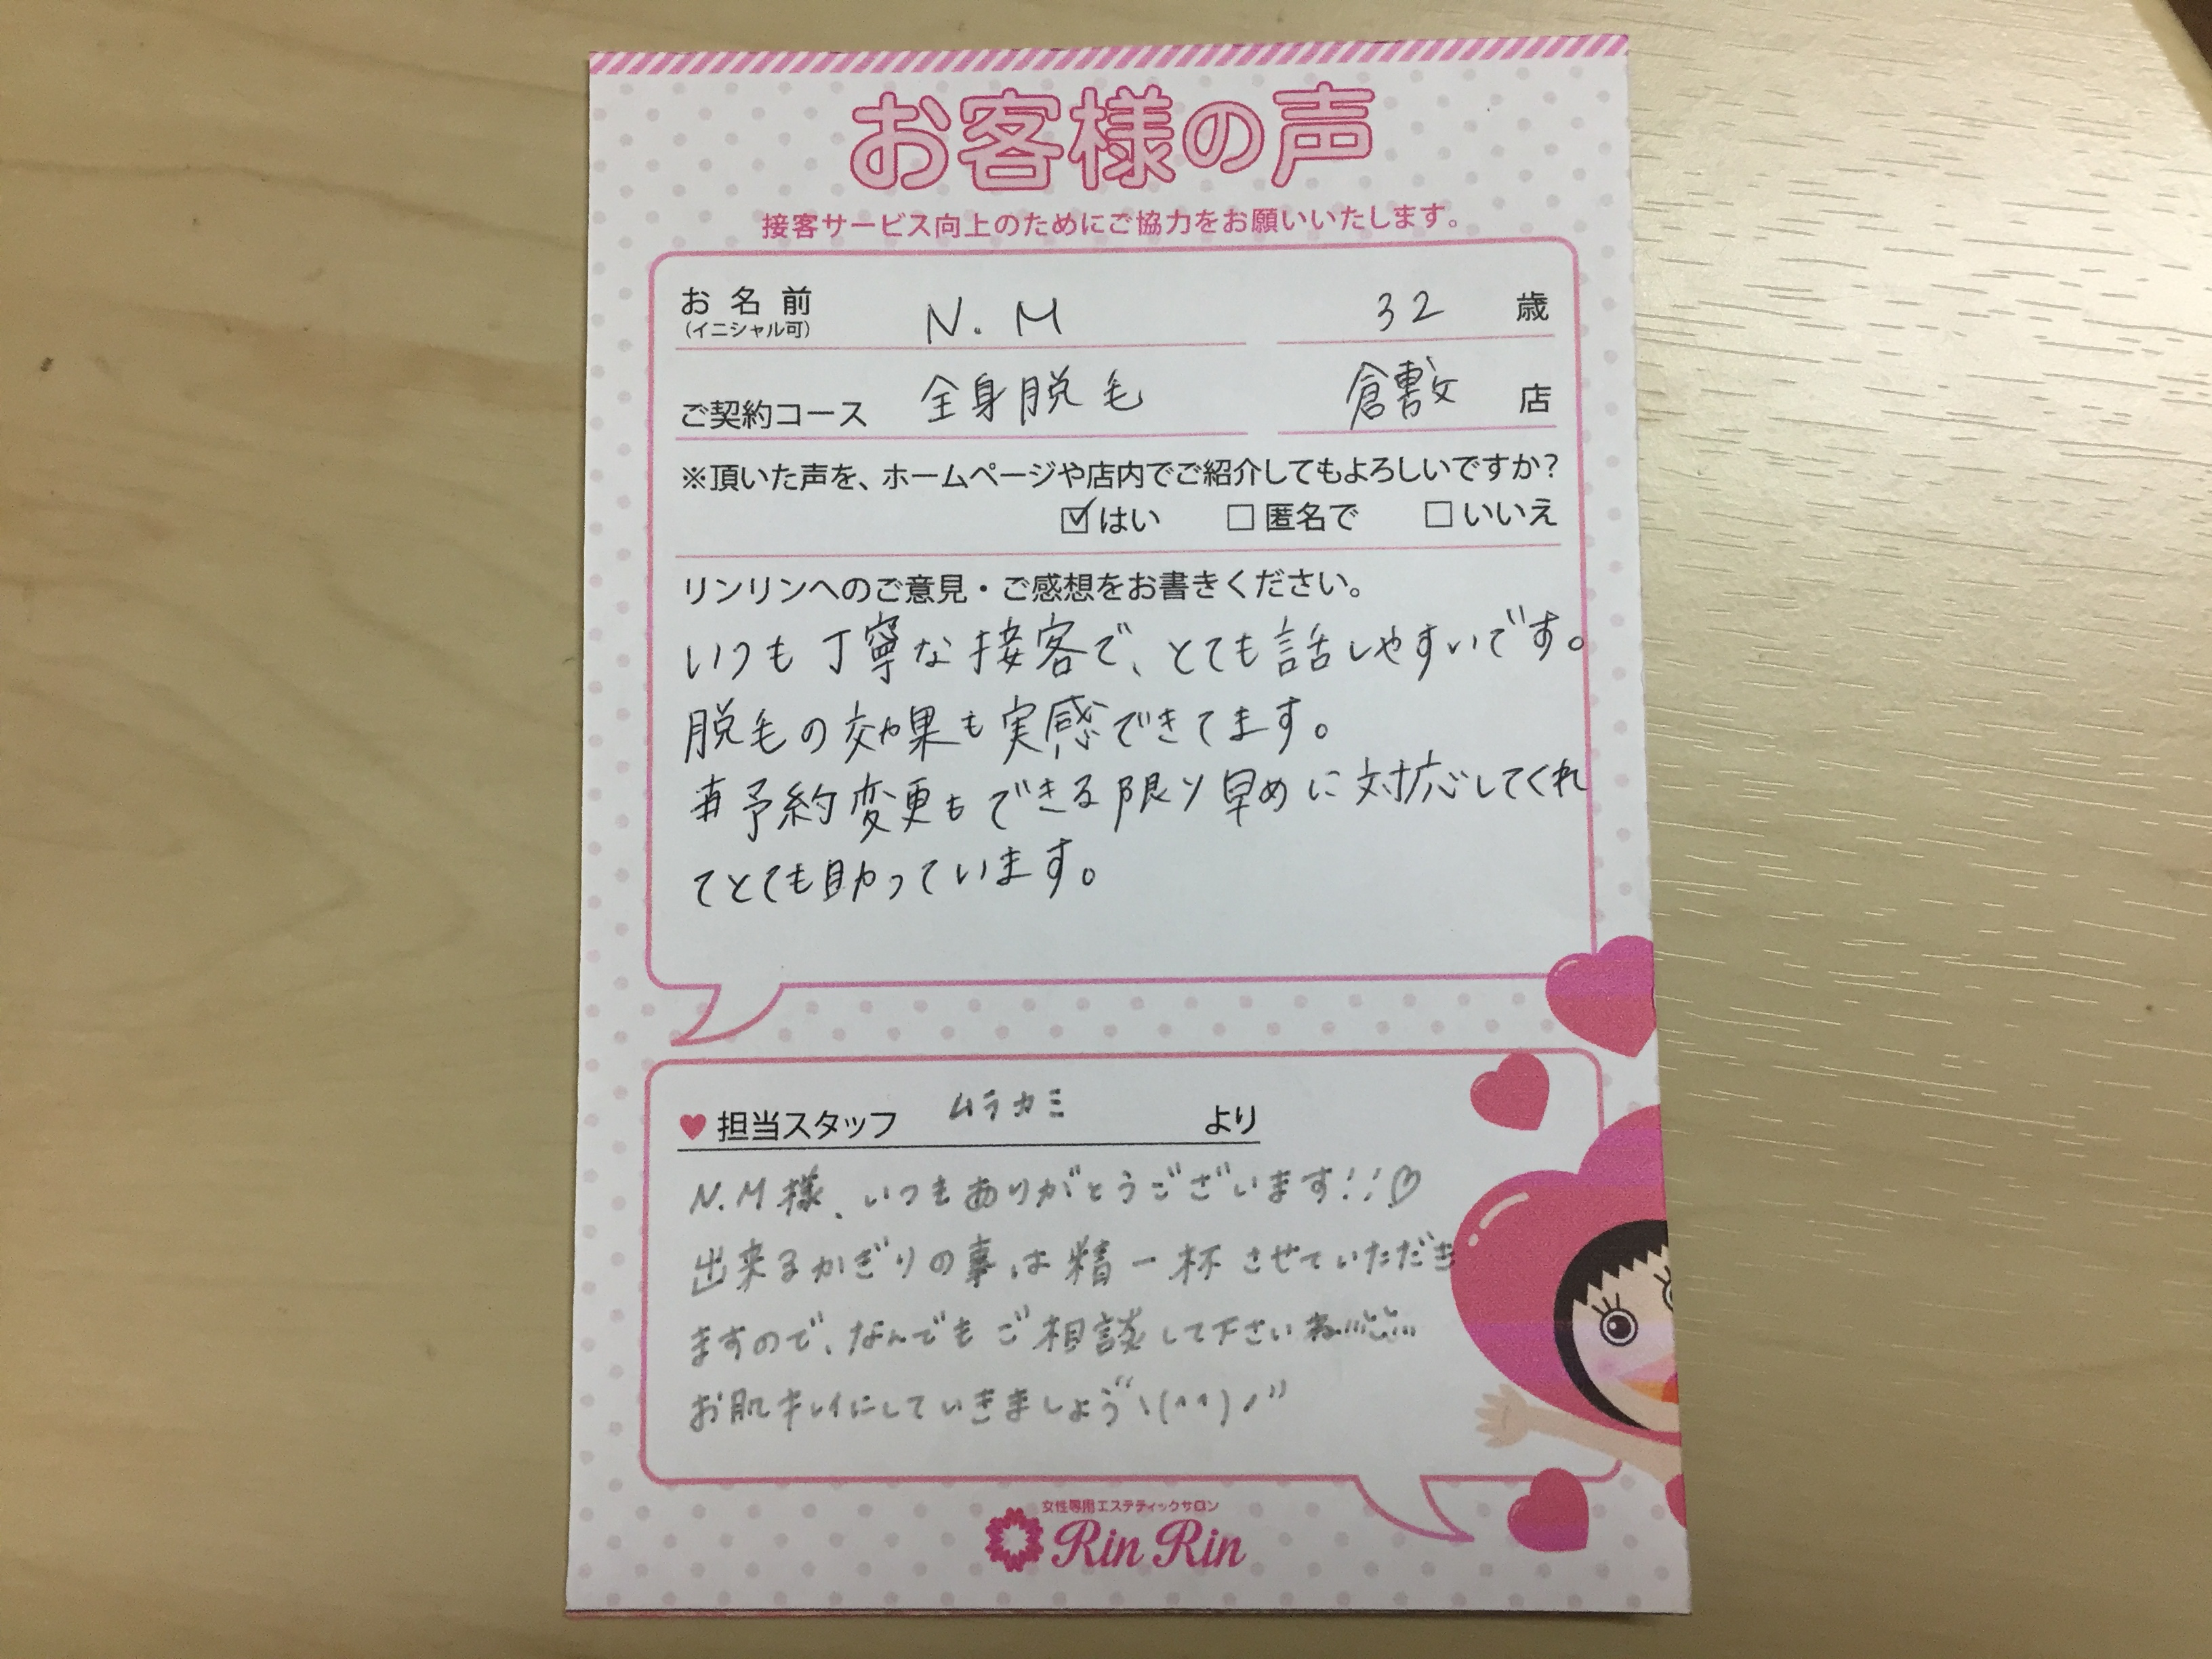 お客様の声
接客サービス向上のためにご協力をお願いいたします。
お名前 N.M 32 歳
(イニシャル可)
ご契約コース 全身脱毛 倉敷 店
※頂いた声を、ホームページや店内でご紹介してもよろしいですか?
☑はい □匿名で □いいえ
リンリンへのご意見・ご感想をお書きください。
いつも丁寧な接客で、とても話しやすいです。
脱毛の効果も実感できてます。
予約変更もできる限り早めに対応してくれ
てとても助っています。
♥担当スタッフ ムラカミ より
N.M様、いつもありがとうございます!!♡
出来るかぎりの事は精一杯させていただき
ますので、なんでもご相談して下さいね
お肌キレイにしていきましょう\(^^)ノ"
女性専用エステティックサロン
Rin Rin